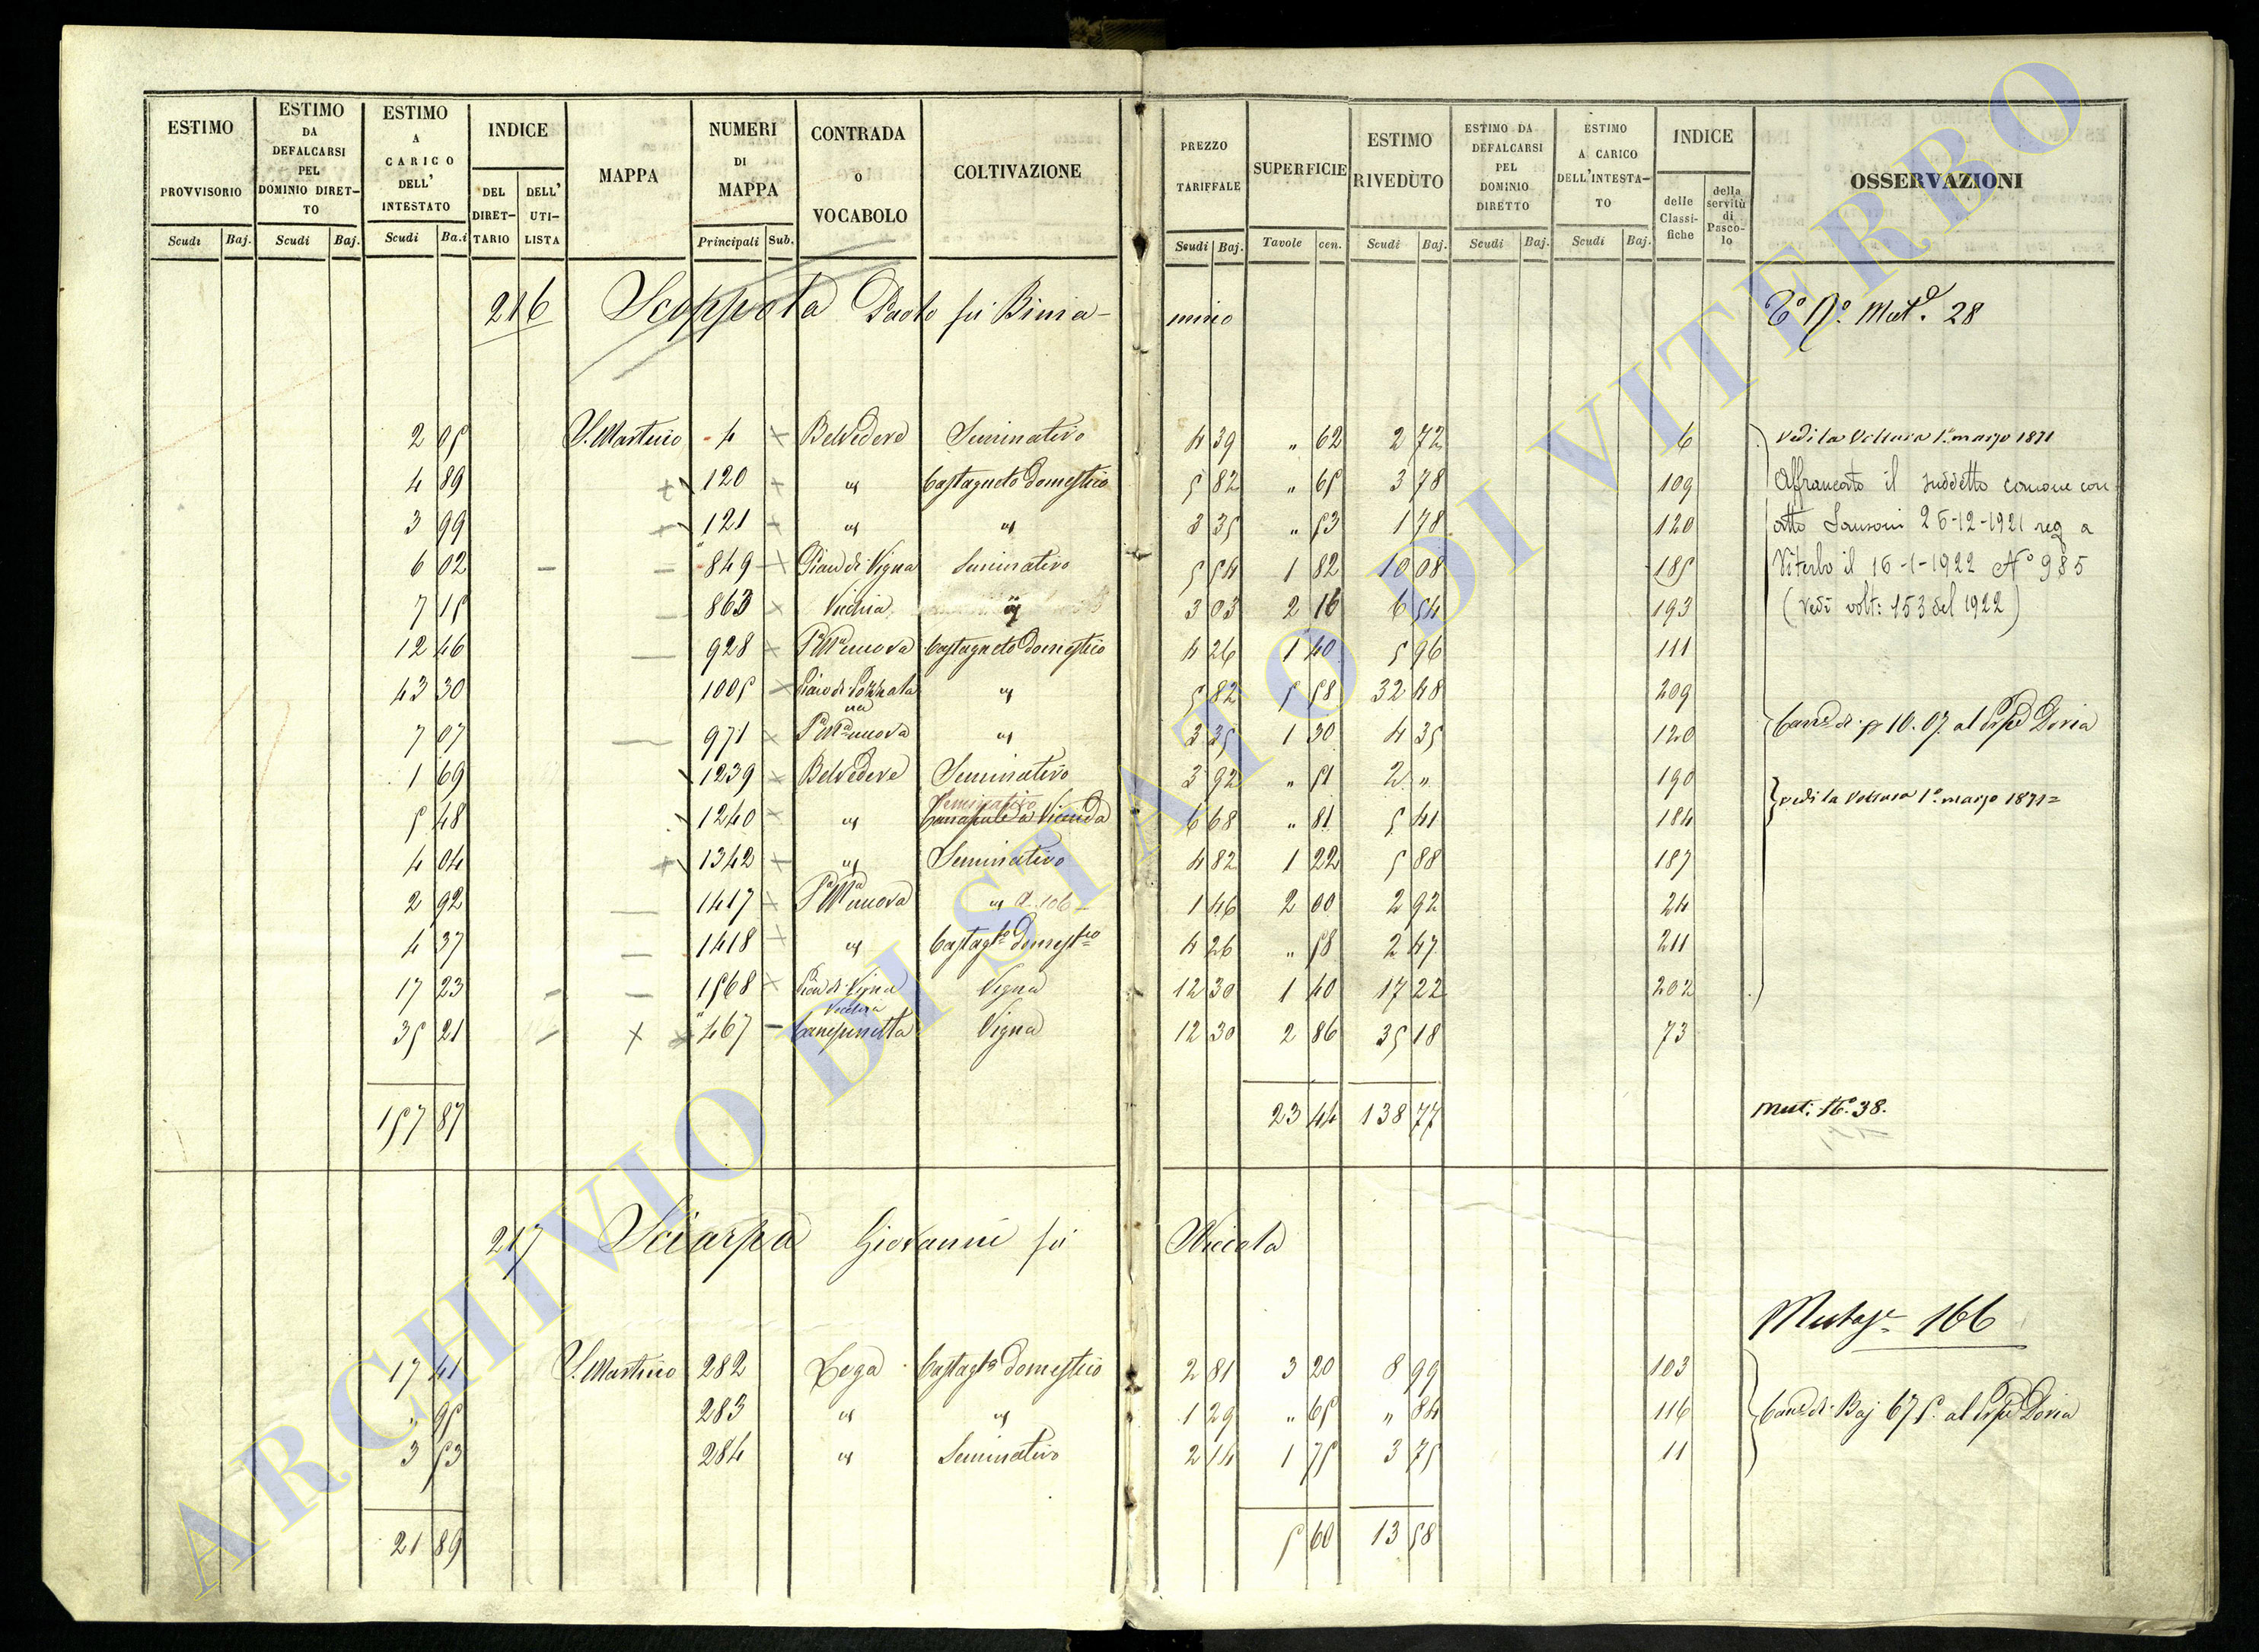 ESTIMO PROVVISORIO Scudi Baj.
ESTIMO DA DEFALCARSI PEL DOMINIO DIRET-TO Scudi Baj.
ESTIMO A CARICO DELL' INTESTATO Scudi Ba.i
INDICE DEL DIRET-TARIO DELL' UTI-LISTA
MAPPA
NUMERI DI MAPPA Principali Sub.
CONTRADA O VOCABOLO
COLTIVAZIONE
PREZZO TARIFFALE Scudi Baj.
SUPERFICIE Tavole cen.
ESTIMO RIVEDUTO Scudi Baj.
ESTIMO DA DEFALCARSI PEL DOMINIO DIRETTO Scudi Baj.
ESTIMO A CARICO DELL'INTESTA-TO Scudi Baj.
INDICE delle Classi-fiche della servitù di Pasco-lo
OSSERVAZIONI
216 Scoppola Paolo fù Binia-mino Mut. 28
2 05 S. Martino 4 Belvedere Seminativo 4 39 " 62 2 72 6 Vedi la Voltura 1° marzo 1871
4 89 120 " Castagneto domestico 5 82 " 65 3 78 109 Affrancato il suddetto canone con
3 99 121 " " 3 35 " 53 1 78 120 atto Sansoni 26-12-1921 reg a
6 02 849 Pian di Vigna Seminativo 5 54 1 82 10 08 185 Viterbo il 16-1-1922 N° 985
7 15 863 Vechia " 3 03 2 16 6 54 193 (vedi volt: 153 del 1922)
12 46 928 nuova Castagneto domestico 4 26 1 40 5 96 111
43 30 1005 Piano di " 5 82 5 58 32 48 209
7 07 971 nuova " 3 35 1 30 4 35 120 10.07 al Doria
1 69 1239 Belvedere Seminativo 3 92 " 51 2 " 190
5 48 1240 " Seminativo 6 68 " 81 5 41 184 vedi la Voltura 1° marzo 1871
4 04 1342 " Seminativo 4 82 1 22 5 88 187
2 92 1417 nuova " 1 46 2 00 2 92 24
4 37 1418 " Castagto domestco 4 26 " 58 2 47 211
17 23 1568 Pian di Vigna Vechia Vigna 12 30 1 40 17 22 202
35 21 467 Vigna 12 30 2 86 35 18 73
157 87 23 44 138 77 Mut: N° 38.
217 Sciarpa Giovanni fù Nicola
Mutaze 166
17 41 S. Martino 282 Lega Castagto domestico 2 81 3 20 8 99 103
" 95 283 " " 1 29 " 65 " 84 116 Baj 67 5. al Doria
3 53 284 " Seminativo 2 14 1 75 3 75 11
21 89 5 60 13 58
ARCHIVIO DI STATO DI VITERBO